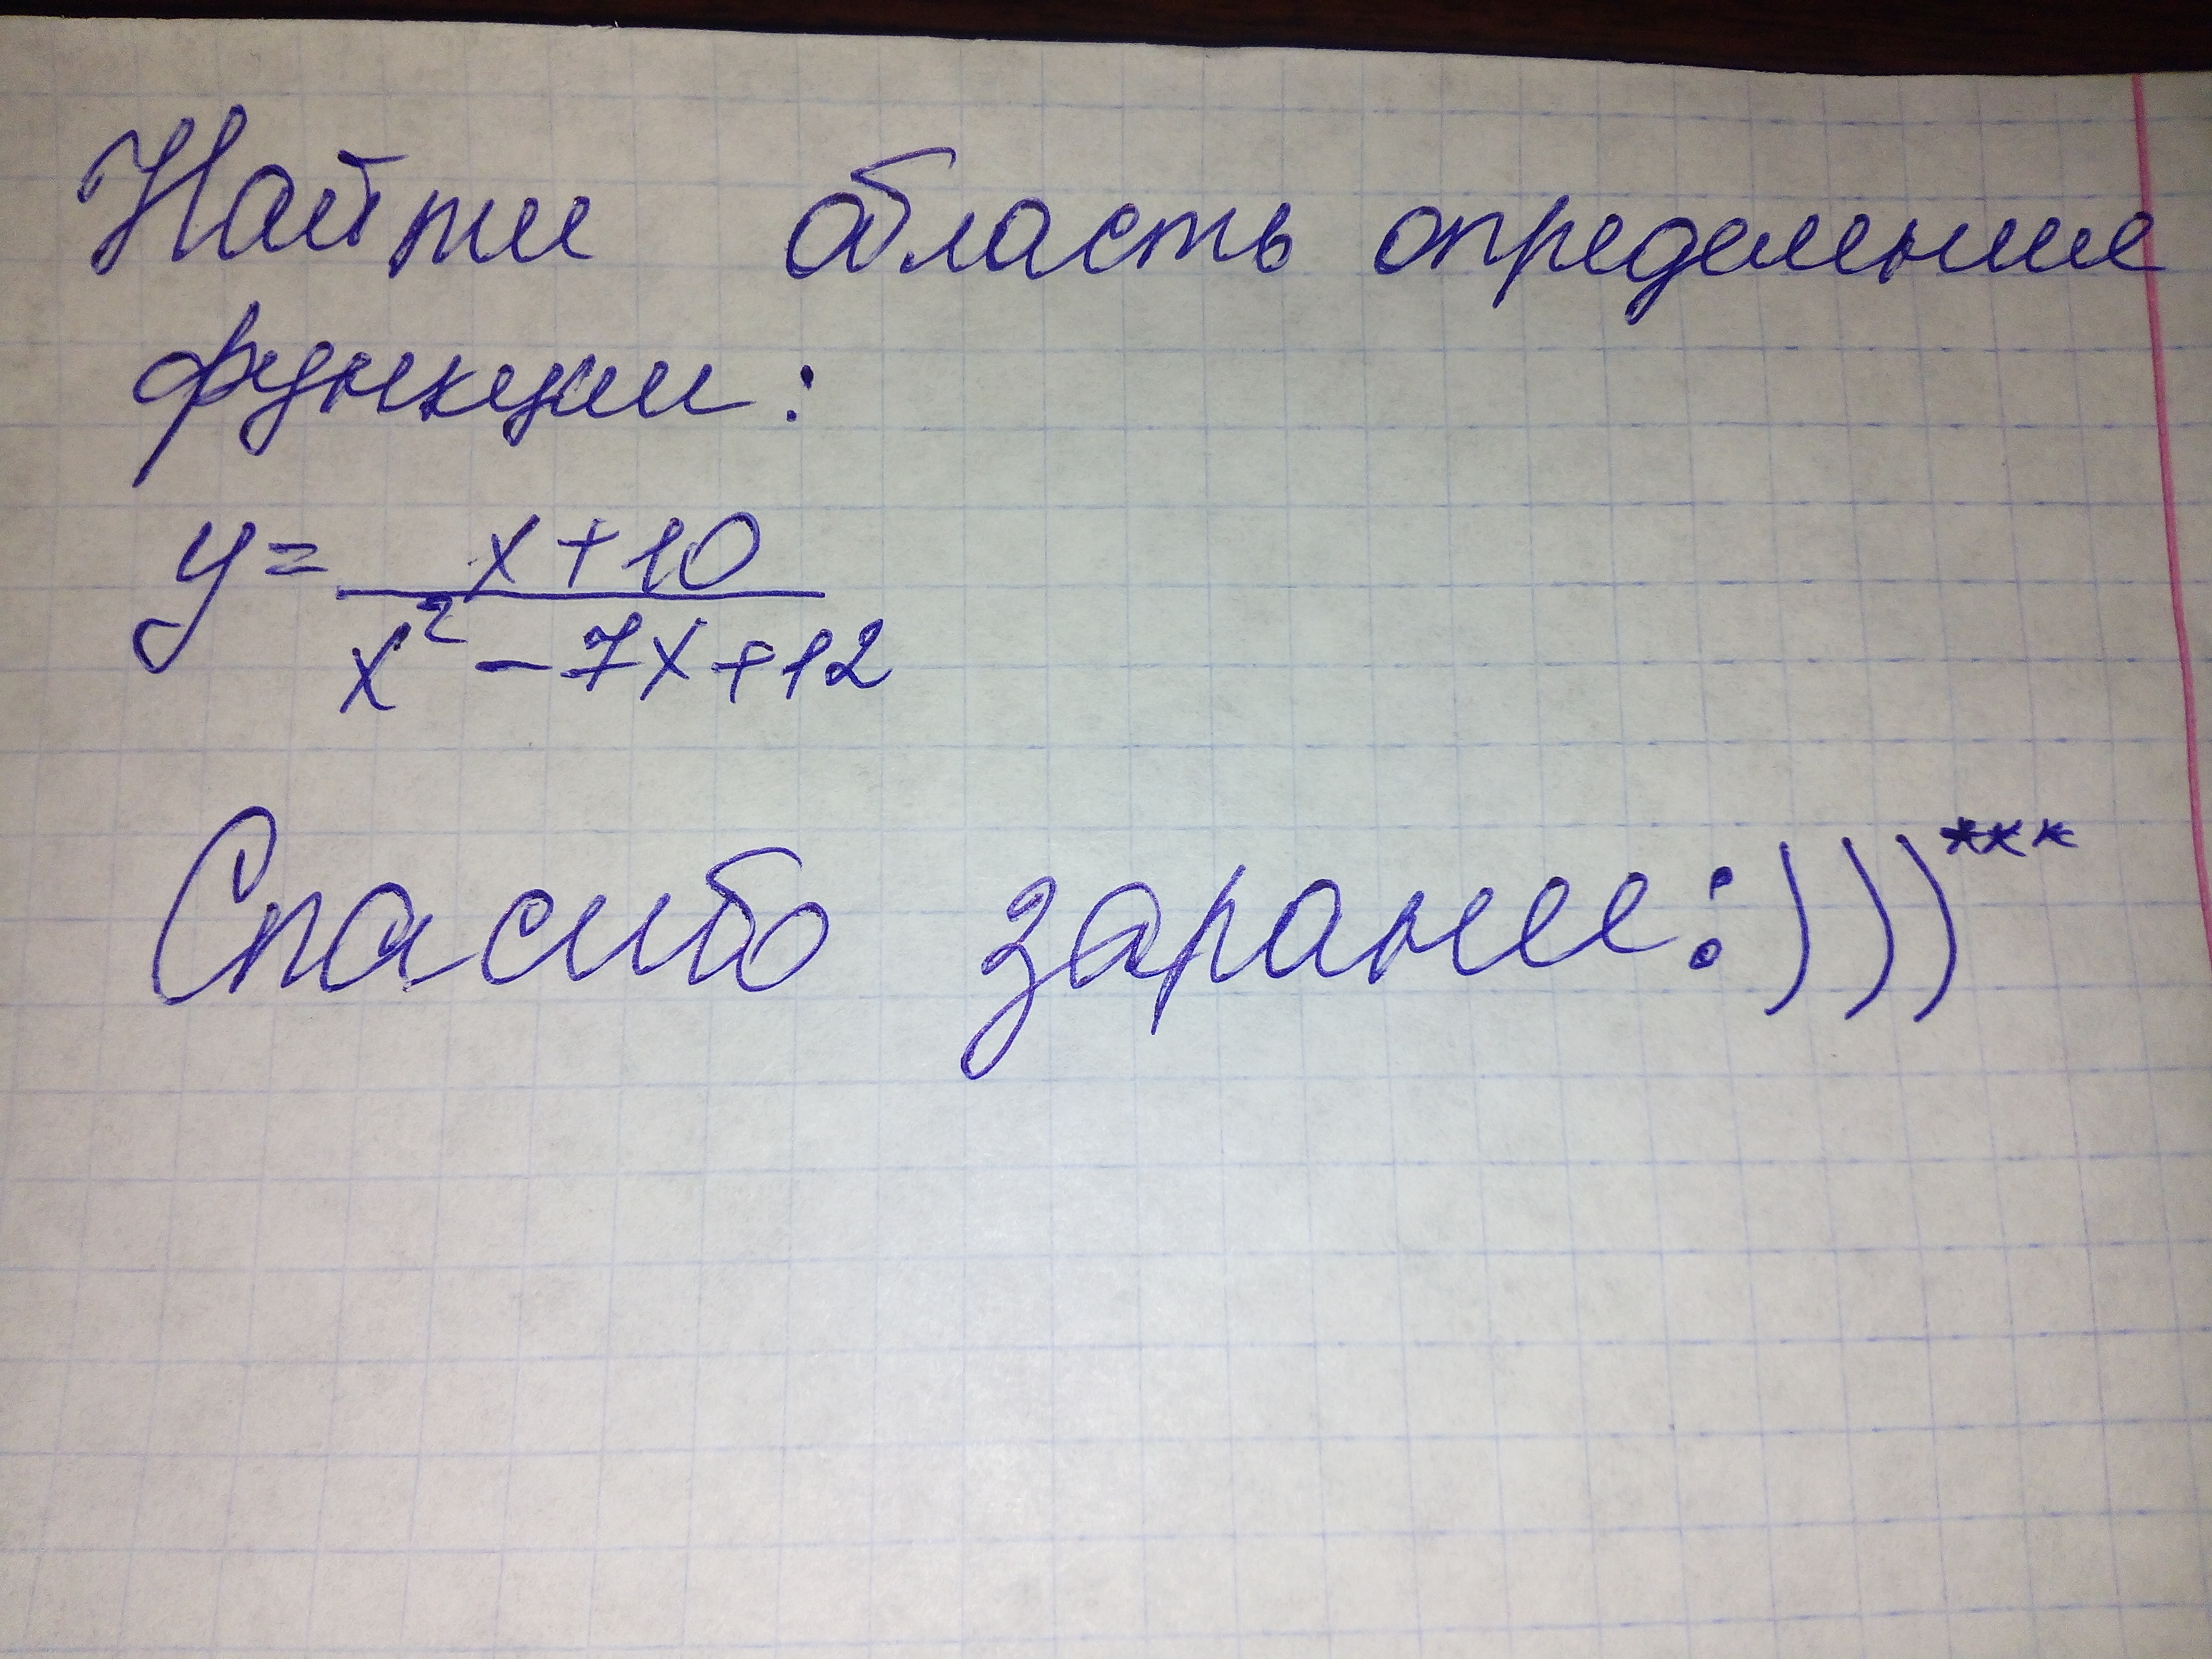 Найти область определение
функции:
y = x+10
x² - 7x+12
Спасибо заранее:)))***